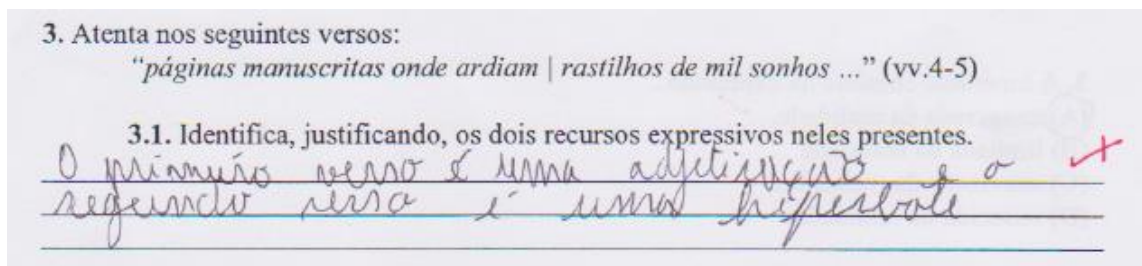 3. Atenta nos seguintes versos:
"páginas manuscritas onde ardiam | rastilhos de mil sonhos ..." (vv.4-5)
3.1. Identifica, justificando, os dois recursos expressivos neles presentes.
O primeiro verso é uma adjetivação e o
segundo verso é uma hipérbole